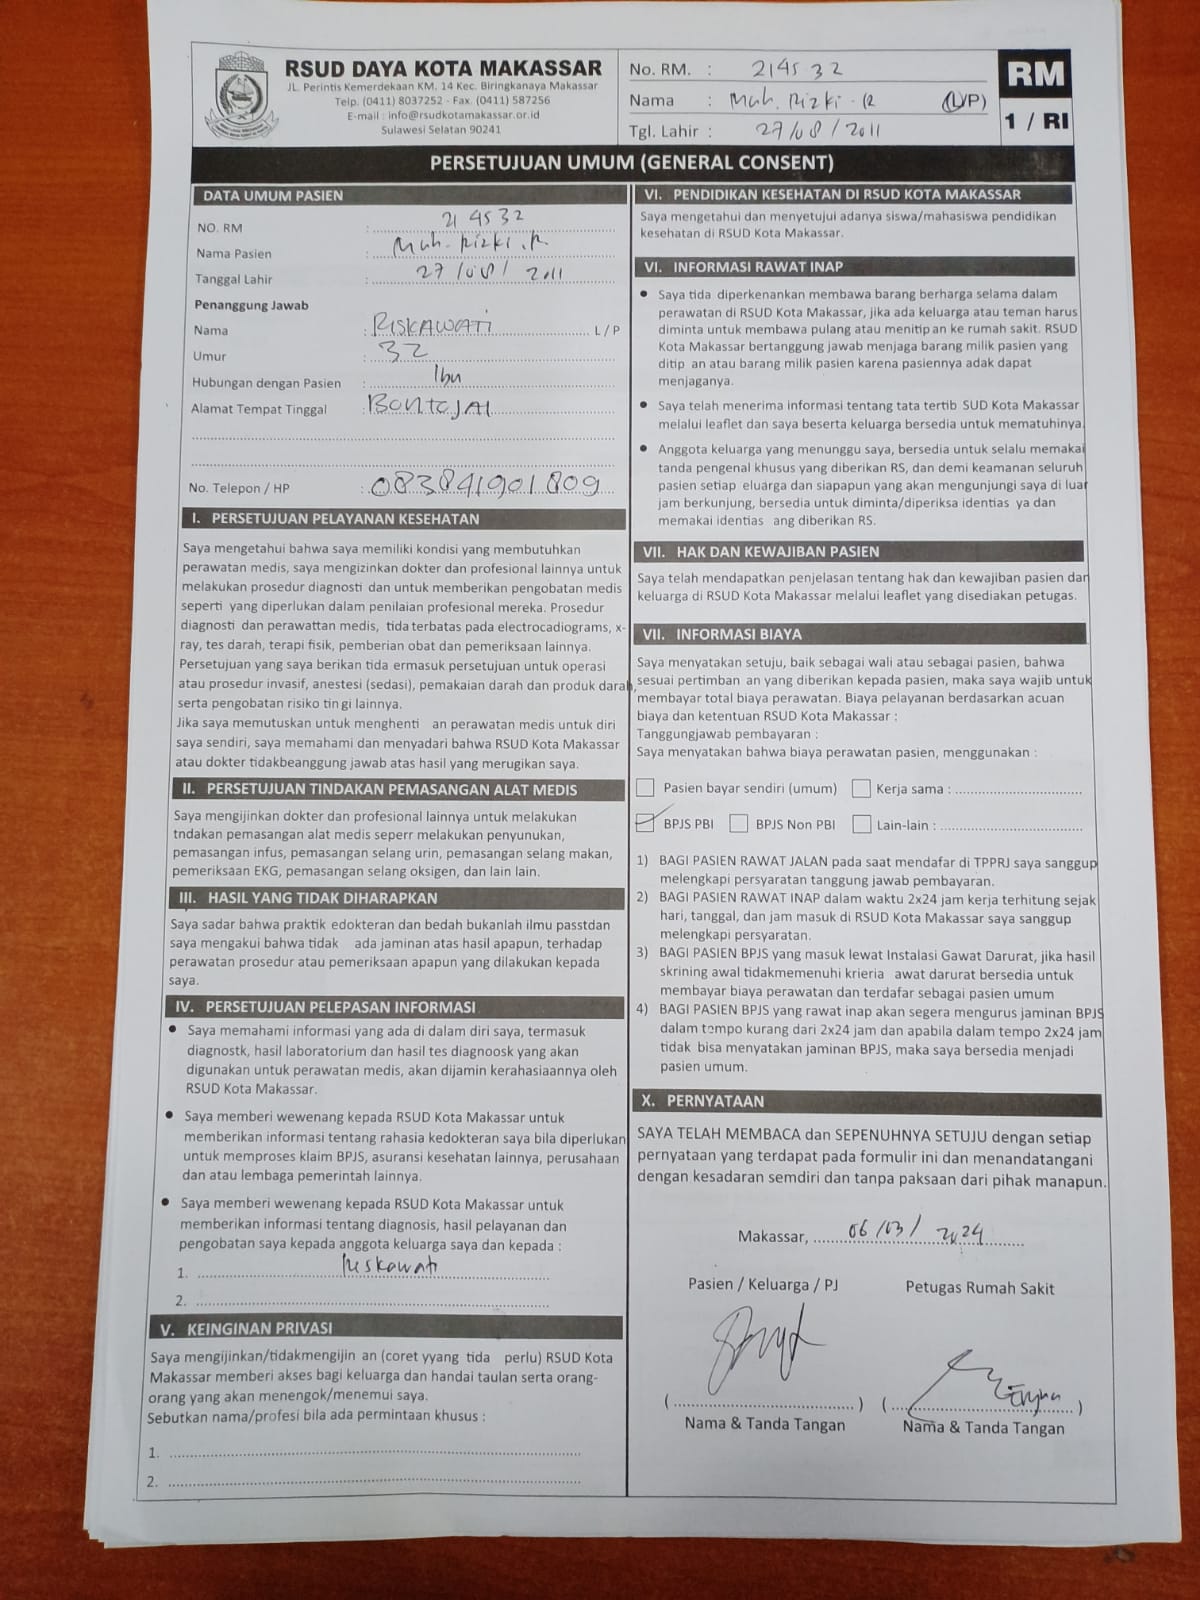 RSUD DAYA KOTA MAKASSAR
JL. Perintis Kemerdekaan KM. 14 Kec. Biringkanaya Makassar
Telp. (0411) 8037252 - Fax. (0411) 587256
E-mail : info@rsudkotamakassar.or.id
Sulawesi Selatan 90241
No. RM. : 214532
Nama : Muh. Rizki . R (L/P)
Tgl. Lahir : 27/08/2011
RM
1 / RI
PERSETUJUAN UMUM (GENERAL CONSENT)
DATA UMUM PASIEN
NO. RM : 214532
Nama Pasien : Muh. Rizki . R
Tanggal Lahir : 27/08/2011
Penanggung Jawab
Nama : RISKAWATI L / P
Umur : 32
Hubungan dengan Pasien : Ibu
Alamat Tempat Tinggal : BONTOJAI
No. Telepon / HP : 083841901809
I. PERSETUJUAN PELAYANAN KESEHATAN
Saya mengetahui bahwa saya memiliki kondisi yang membutuhkan
perawatan medis, saya mengizinkan dokter dan profesional lainnya untuk
melakukan prosedur diagnosti dan untuk memberikan pengobatan medis
seperti yang diperlukan dalam penilaian profesional mereka. Prosedur
diagnosti dan perawattan medis, tida terbatas pada electrocadiograms, x-
ray, tes darah, terapi fisik, pemberian obat dan pemeriksaan lainnya.
Persetujuan yang saya berikan tida ermasuk persetujuan untuk operasi
atau prosedur invasif, anestesi (sedasi), pemakaian darah dan produk darah,
serta pengobatan risiko tin gi lainnya.
Jika saya memutuskan untuk menghenti an perawatan medis untuk diri
saya sendiri, saya memahami dan menyadari bahwa RSUD Kota Makassar
atau dokter tidakbeanggung jawab atas hasil yang merugikan saya.
II. PERSETUJUAN TINDAKAN PEMASANGAN ALAT MEDIS
Saya mengijinkan dokter dan profesional lainnya untuk melakukan
tndakan pemasangan alat medis seperr melakukan penyunukan,
pemasangan infus, pemasangan selang urin, pemasangan selang makan,
pemeriksaan EKG, pemasangan selang oksigen, dan lain lain.
III. HASIL YANG TIDAK DIHARAPKAN
Saya sadar bahwa praktik edokteran dan bedah bukanlah ilmu passtdan
saya mengakui bahwa tidak ada jaminan atas hasil apapun, terhadap
perawatan prosedur atau pemeriksaan apapun yang dilakukan kepada
saya.
IV. PERSETUJUAN PELEPASAN INFORMASI
• Saya memahami informasi yang ada di dalam diri saya, termasuk
diagnostk, hasil laboratorium dan hasil tes diagnoosk yang akan
digunakan untuk perawatan medis, akan dijamin kerahasiaannya oleh
RSUD Kota Makassar.
• Saya memberi wewenang kepada RSUD Kota Makassar untuk
memberikan informasi tentang rahasia kedokteran saya bila diperlukan
untuk memproses klaim BPJS, asuransi kesehatan lainnya, perusahaan
dan atau lembaga pemerintah lainnya.
• Saya memberi wewenang kepada RSUD Kota Makassar untuk
memberikan informasi tentang diagnosis, hasil pelayanan dan
pengobatan saya kepada anggota keluarga saya dan kepada :
1. Riskawati
2.
V. KEINGINAN PRIVASI
Saya mengijinkan/tidakmengijin an (coret yyang tida perlu) RSUD Kota
Makassar memberi akses bagi keluarga dan handai taulan serta orang-
orang yang akan menengok/menemui saya.
Sebutkan nama/profesi bila ada permintaan khusus :
1.
2.
VI. PENDIDIKAN KESEHATAN DI RSUD KOTA MAKASSAR
Saya mengetahui dan menyetujui adanya siswa/mahasiswa pendidikan
kesehatan di RSUD Kota Makassar.
VI. INFORMASI RAWAT INAP
• Saya tida diperkenankan membawa barang berharga selama dalam
perawatan di RSUD Kota Makassar, jika ada keluarga atau teman harus
diminta untuk membawa pulang atau menitip an ke rumah sakit. RSUD
Kota Makassar bertanggung jawab menjaga barang milik pasien yang
ditip an atau barang milik pasien karena pasiennya adak dapat
menjaganya.
• Saya telah menerima informasi tentang tata tertib SUD Kota Makassar
melalui leaflet dan saya beserta keluarga bersedia untuk mematuhinya
• Anggota keluarga yang menunggu saya, bersedia untuk selalu memakai
tanda pengenal khusus yang diberikan RS, dan demi keamanan seluruh
pasien setiap eluarga dan siapapun yang akan mengunjungi saya di luar
jam berkunjung, bersedia untuk diminta/diperiksa identias ya dan
memakai identias ang diberikan RS.
VII. HAK DAN KEWAJIBAN PASIEN
Saya telah mendapatkan penjelasan tentang hak dan kewajiban pasien dan
keluarga di RSUD Kota Makassar melalui leaflet yang disediakan petugas.
VII. INFORMASI BIAYA
Saya menyatakan setuju, baik sebagai wali atau sebagai pasien, bahwa
sesuai pertimban an yang diberikan kepada pasien, maka saya wajib untuk
membayar total biaya perawatan. Biaya pelayanan berdasarkan acuan
biaya dan ketentuan RSUD Kota Makassar :
Tanggungjawab pembayaran :
Saya menyatakan bahwa biaya perawatan pasien, menggunakan :
Pasien bayar sendiri (umum) Kerja sama :
BPJS PBI BPJS Non PBI Lain-lain :
1) BAGI PASIEN RAWAT JALAN pada saat mendafar di TPPRJ saya sanggup
melengkapi persyaratan tanggung jawab pembayaran.
2) BAGI PASIEN RAWAT INAP dalam waktu 2x24 jam kerja terhitung sejak
hari, tanggal, dan jam masuk di RSUD Kota Makassar saya sanggup
melengkapi persyaratan.
3) BAGI PASIEN BPJS yang masuk lewat Instalasi Gawat Darurat, jika hasil
skrining awal tidakmemenuhi krieria awat darurat bersedia untuk
membayar biaya perawatan dan terdafar sebagai pasien umum
4) BAGI PASIEN BPJS yang rawat inap akan segera mengurus jaminan BPJS
dalam tempo kurang dari 2x24 jam dan apabila dalam tempo 2x24 jam
tidak bisa menyatakan jaminan BPJS, maka saya bersedia menjadi
pasien umum.
X. PERNYATAAN
SAYA TELAH MEMBACA dan SEPENUHNYA SETUJU dengan setiap
pernyataan yang terdapat pada formulir ini dan menandatangani
dengan kesadaran semdiri dan tanpa paksaan dari pihak manapun.
Makassar, 06/03/2024
Pasien / Keluarga / PJ Petugas Rumah Sakit
Nama & Tanda Tangan Nama & Tanda Tangan